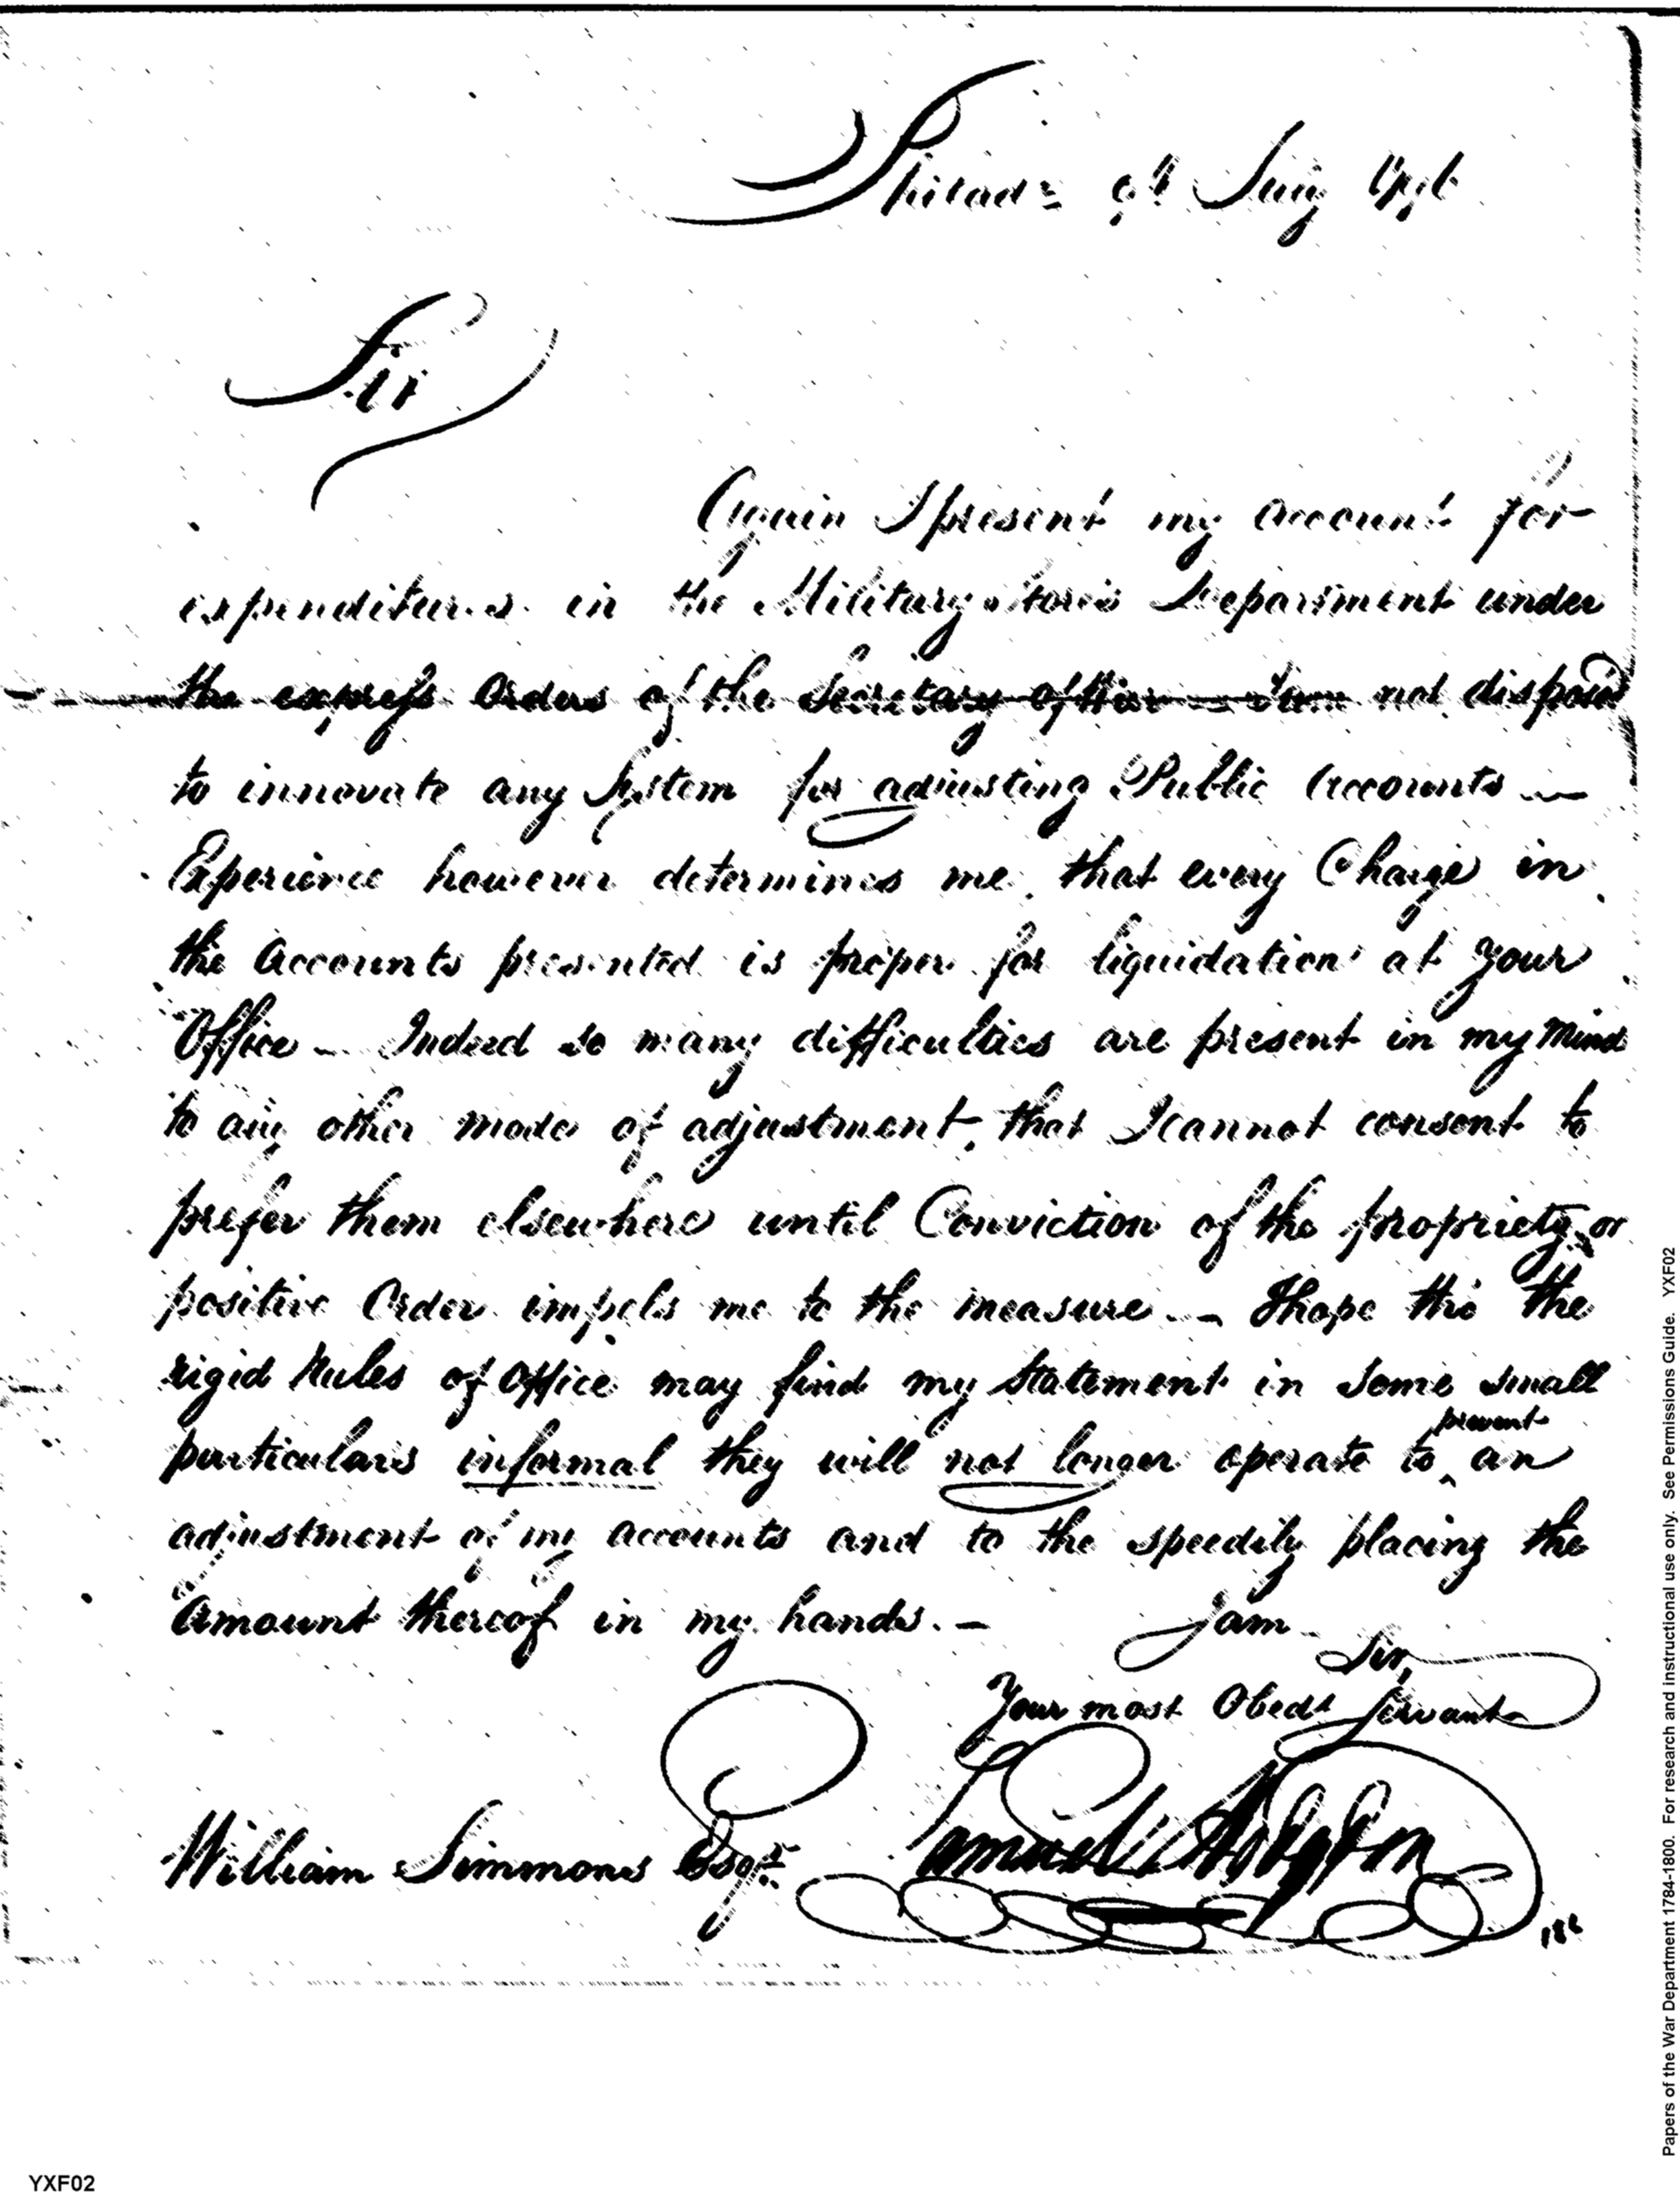 Philada 9th July 1796
Sir
Again I present my account for
expenditures in the Military Stores Department under
the express Orders of the Secretary of War — I am not disposed
to innovate any System for adjusting Public Accounts —
Experience however determines me that every Charge in
the Accounts presented is proper for liquidation at your
Office — Indeed so many difficulties are present in my Mind
to any other mode of adjustment, that I cannot consent to
prefer them elsewhere until Conviction of the propriety, or
positive Order impels me to the measure — I hope tho the
rigid Rules of Office may find my Statement in some small
particulars informal they will not longer operate to prevent an
adjustment of my accounts and to the speedily placing the
Amount thereof in my hands. —
I am
Sir,
Your most Obedt Servant
Samuel Hodgdon
William Simmons Esqr
186
Papers of the War Department 1784-1800. For research and instructional use only. See Permissions Guide. YXF02
YXF02